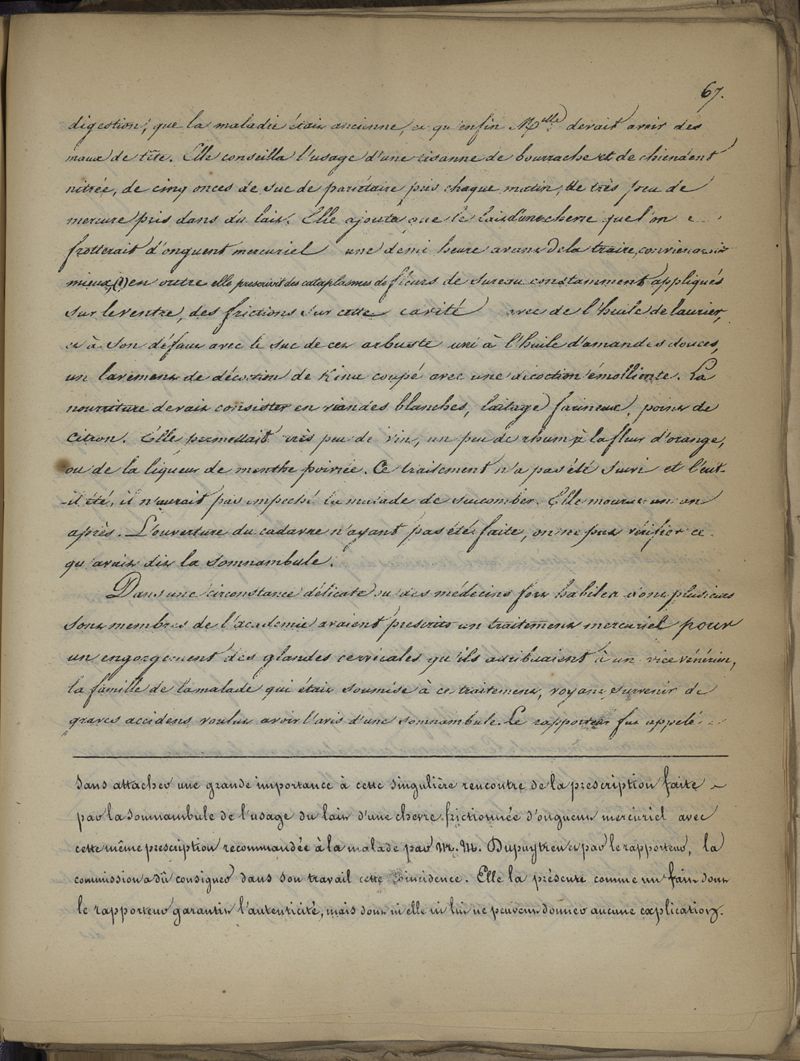 67.
digestion, que la maladie était ancienne, et qu'enfin Melle devait avoir des
maux de tête. Elle conseilla l'usage d'une tisanne de bourrache et de chiendent
nitrée, de cinq onces de suc de pariétaire pris chaque matin, et de très peu de
mercure pris dans du lait. Elle ajouta que le lait d'une chevre que l'on
frotterait d'onguent mercuriel une demi heure avant de la traire, conviendrait
mieux, (1) en outre elle prescrivit des cataplasmes de fleurs de sureau constamment appliqués
sur le ventre, des frictions sur cette cavité avec de l'huile de laurier,
et à son défaut avec le suc de cet arbuste uni à l'huile d'amandes douces,
un lavement de décoction de Kina coupé avec une décoction émolliente. La
nourriture devait consister en viandes blanches, laitage, farineux, point de
citron. Elle permettait très peu de vin, un peu de rhum à la fleur d'orange,
ou de la liqueur de menthe poivrée. Ce traitement n'a pas été suivi et l'eut-
-il été, il n'aurait pas empeché la malade de succomber. Elle mourut un an
après. L'ouverture du cadavre n'ayant pas été faite, on ne put vérifier ce
qu'avait dit la somnambule.
Dans une circonstance délicate ou des médecins fort habiles dont plusieurs
sont membres de l'academie avaient prescrit un traitement mercuriel pour
un engorgement des glandes cervicales qu'ils attribuaient à un vice vénérien,
la famille de la malade qui était soumise à ce traitement, voyant survenir de
graves accidens voulut avoir l'avis d'une somnambule. Le rapporteur fut appelé
sans attacher une grande importance à cette singulière rencontre de la prescription faite
par la somnambule de l'usage du lait d'une chevre frictionnée d'onguent mercuriel avec
cette même prescription recommandée à la malade par M. M. Dupuytren et par le rapporteur, la
commission a dû consigner dans son travail cette coincidence. Elle la présente comme un fait dont
le rapporteur garantit l'autenticité, mais dont ni elle ni lui ne peuvent donner aucune explication.